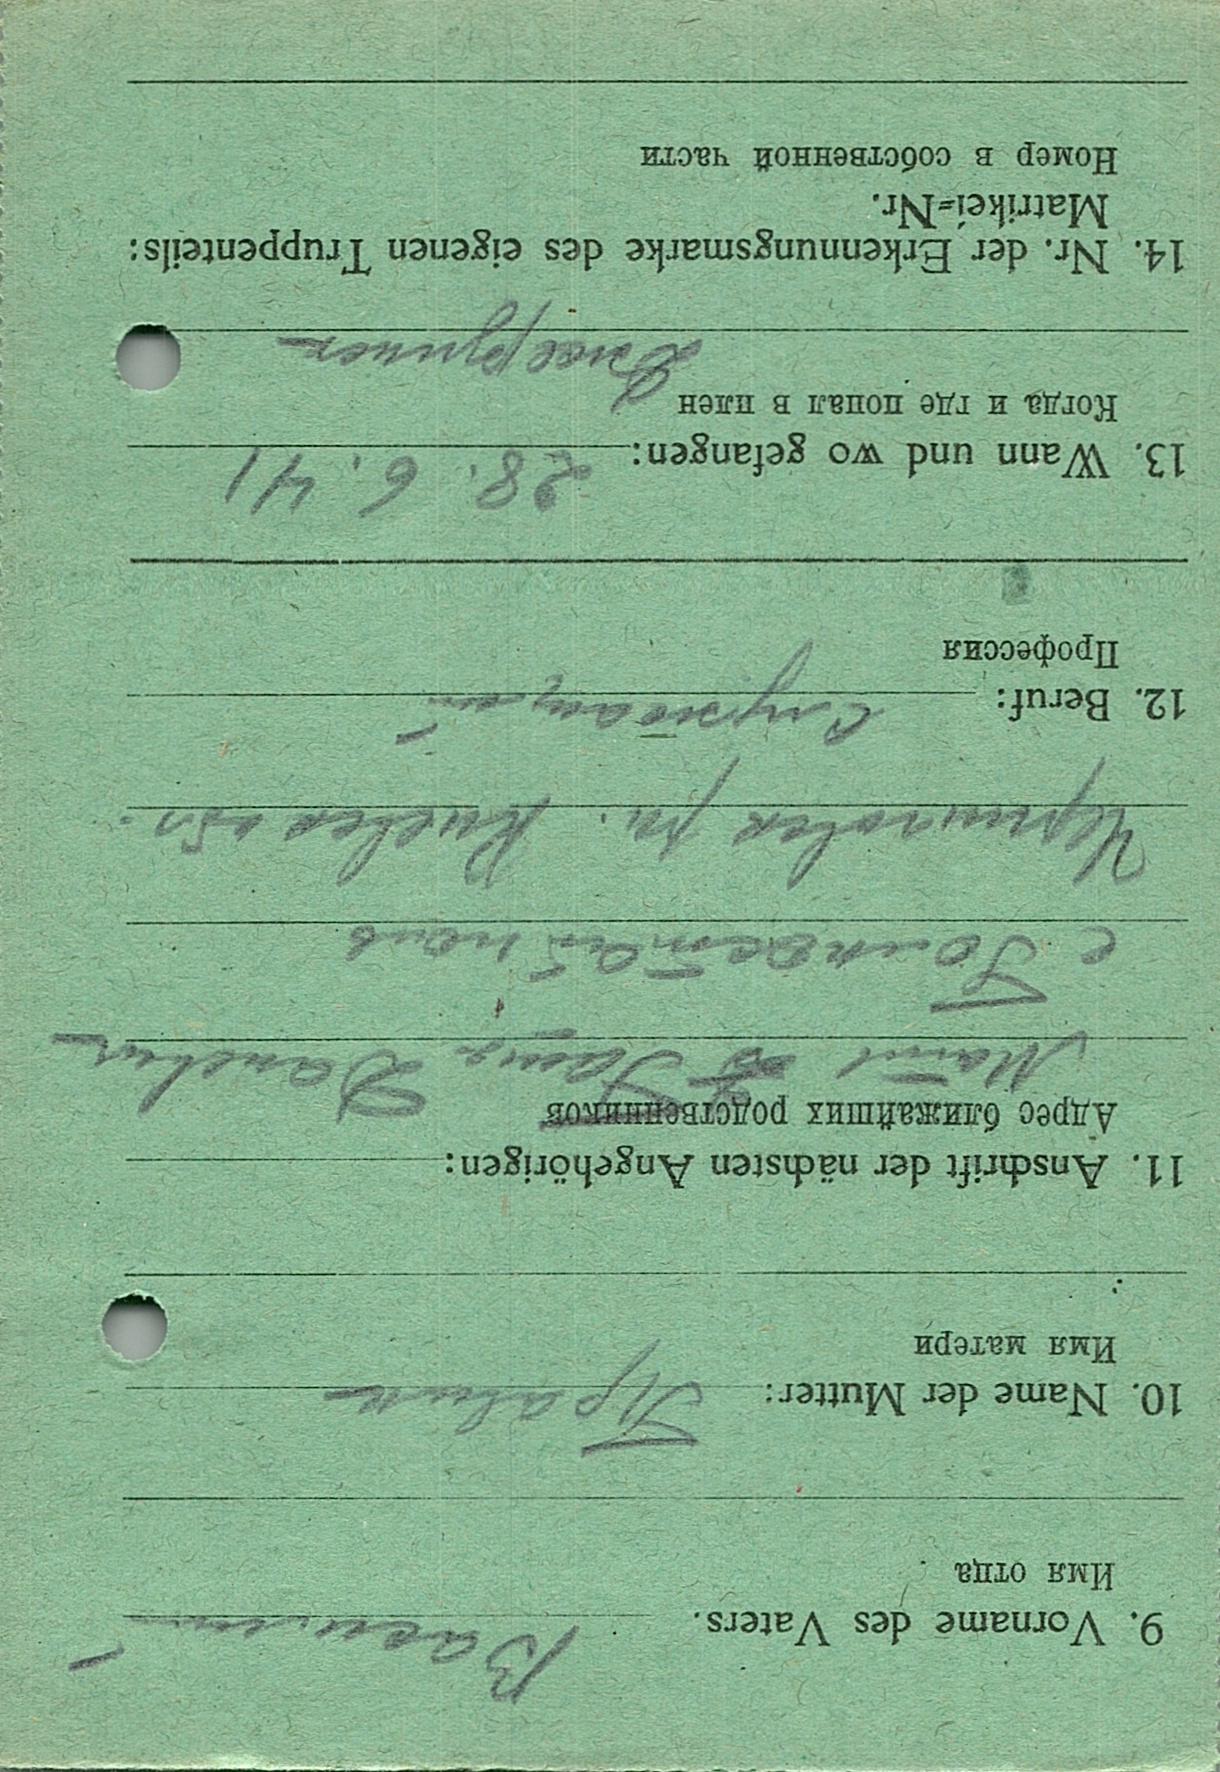 9. Vorname des Vaters. Василий
Имя отца
10. Name der Mutter:
Имя матери
11. Anschrift der nächsten Angehörigen:
Адрес ближайших родственников
Мать
с
р-н. Киевск обл.
12. Beruf: служащий
Профессия
13. Wann und wo gefangen: 28. 6. 41
Когда и где попал в плен
14. Nr. der Erkennungsmarke des eigenen Truppenteils:
Matrikel=Nr.
Номер в собственной части